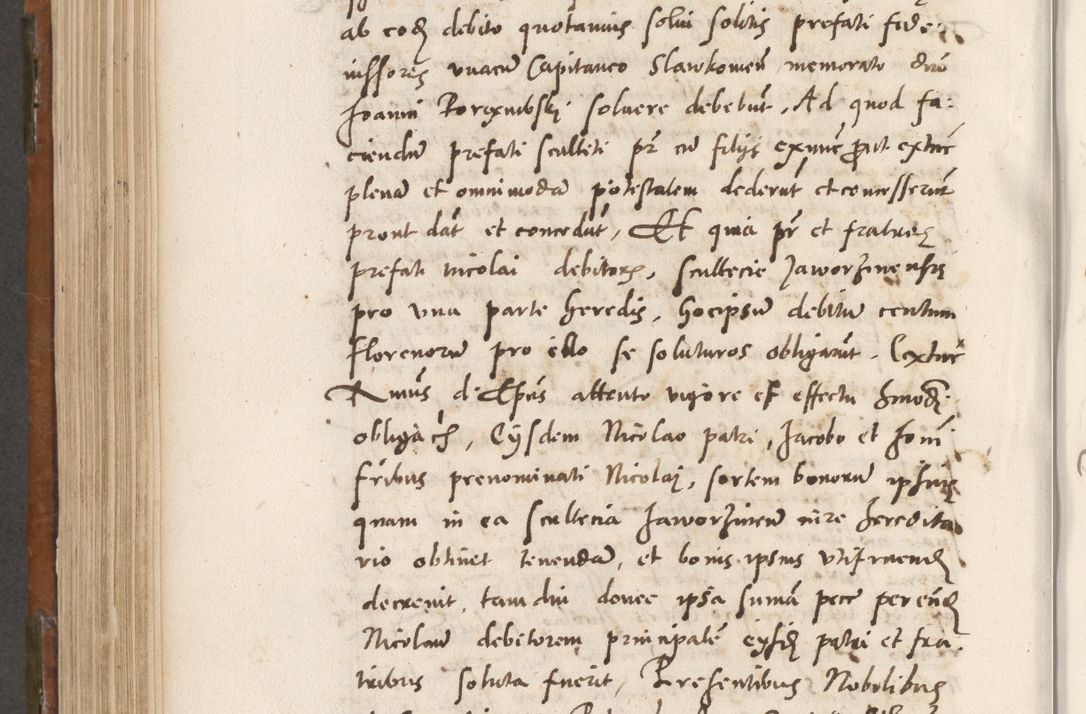 ab eodẽ debito quotannis solui solitis prefati fide:
iussores vnacũ Capitaneo Slawkowieñ memorato dño
Joanni Borzxnwski soluere debebũt, Ad quod fa:
ciendũ prefati sculteti pr̃ cũ filijs extunc prout extunc
plenã et omnimodã potestatem dederũt et concesserũt
prout dãt et concedũt, Et quia pr̃ et fratres
prefati Nicolai debitoris, scultecie Jaworzinensis
pro vna parte heredis, hocipsũ debitũ centum
florenorũ pro illo se soluturos obligarũt. Extunc
Rmũs d. Epũs attento vigore et effectu hmõdi
obligac̃, Eijsdem Nicolao patri, Jacobo et Joañi
fr̃ibus prenominati Nicolai, sortem bonorũ ipsius
quam in ea scultecia Jaworzineñ iure heredita
rio obtinet tenendã, et bonis ipsius vtifruendẽ
decreuit, tam diu donec ipsa sumã pecc̃ per eũdẽ
Nicolaũ debitorem principalẽ eysdẽ patri et fra:
tribus soluta fuerit, Presentibus Nobilibus